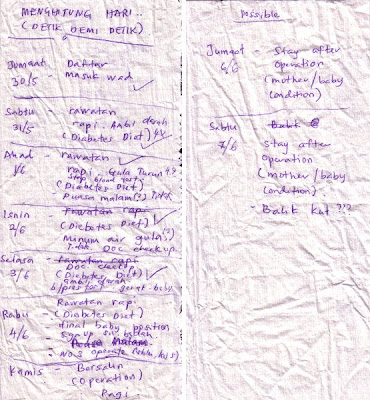 MENGHITUNG HARI..
(DETIK DEMI DETIK)
Jumaat - Daftar
30/5 - masuk wad
Sabtu - rawatan
31/5 rapi. Ambil darah
(Diabetes Diet) 4X
Ahad - rawatan
1/6 rapi. Gula Turun??
Stop blood test
(Diabetes Diet)
Puasa malam(?)
Isnin - rawatan rapi
2/6 (Diabetes Diet)
Minum air gula(?)
DOC check up
Selasa - rawatan rapi
3/6 DOC check
(Diabetes Diet)
ambil darah
b/pressure, gerak baby
Rabu - Rawatan rapi
4/6 (Diabetes Diet)
final baby position
Sign up
Puasa Malam
No 3 operate
Khamis - Bersalin
(operation)
Pagi
Possible
Jumaat - Stay after
6/6 operation
(mother/baby
condition)
Sabtu - Balik
7/6 stay after
operation
(mother/baby
condition)
- Balik kot ???